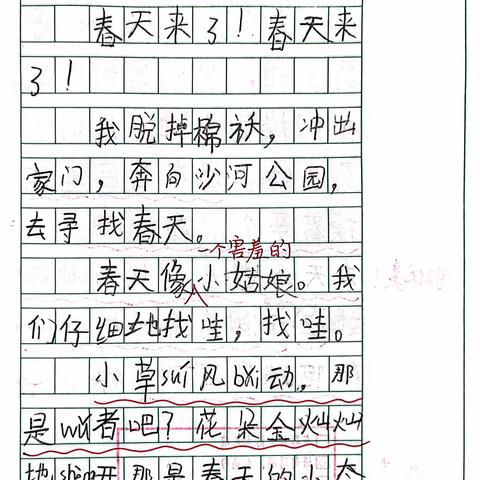 春天来了！春天来
了！
我脱掉棉袄，冲出
家门，奔向沙河公园，
去寻找春天。
一个害羞的
春天像小姑娘。我
们仔细地找哇，找哇。
小草suí风bǎi动，那
是wǔ者吧？花朵金灿灿
地shèng开，那是春天的小